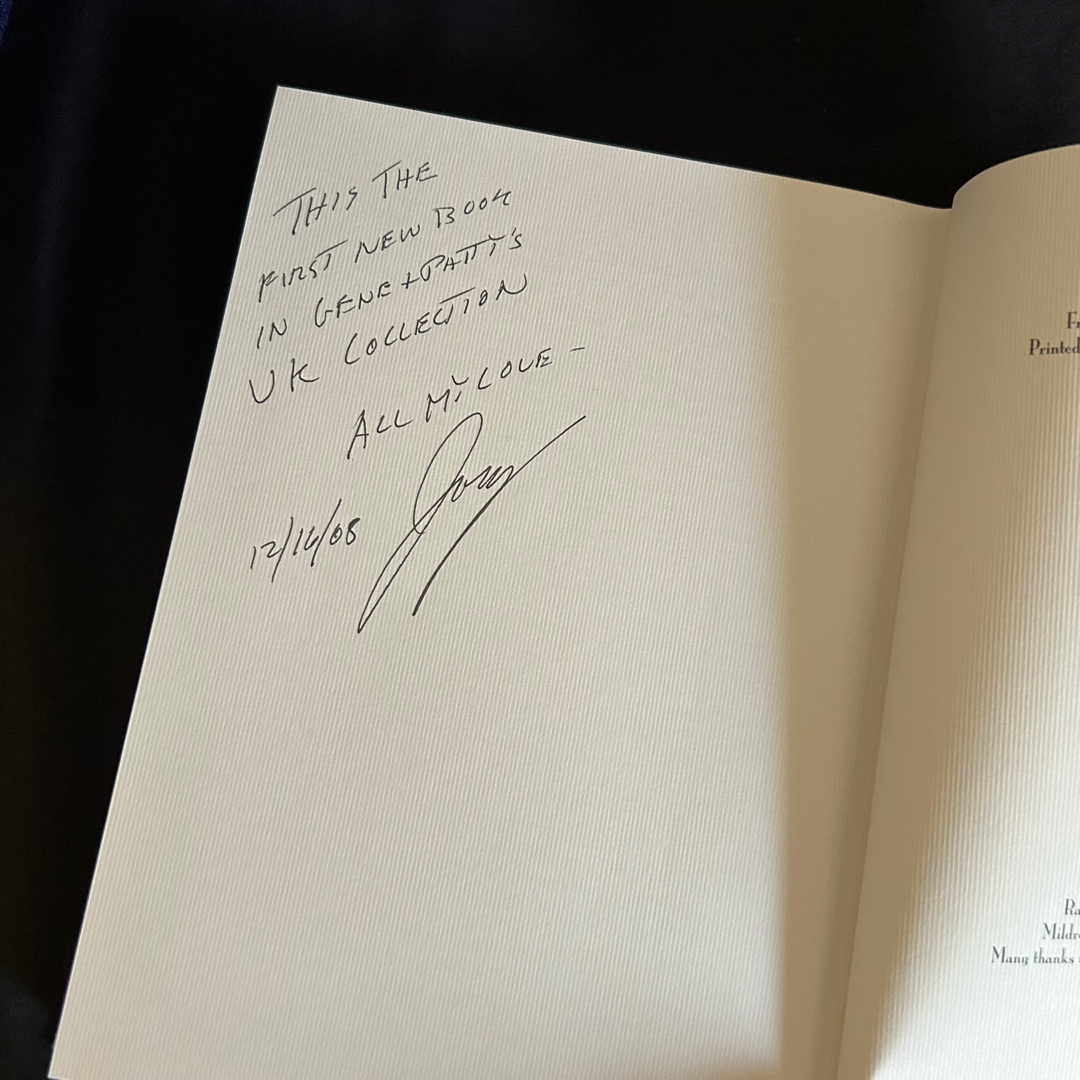 THIS THE
FIRST NEW BOOK
IN GENE + PATTI'S
UK COLLECTION
ALL MY LOVE -
12/16/08
Printed
Many thanks